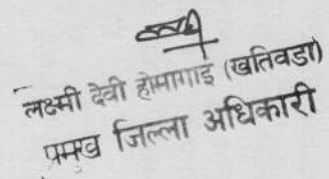 लक्ष्मी देवी होमागाई (खतिवडा)
प्रमुख जिल्ला अधिकारी